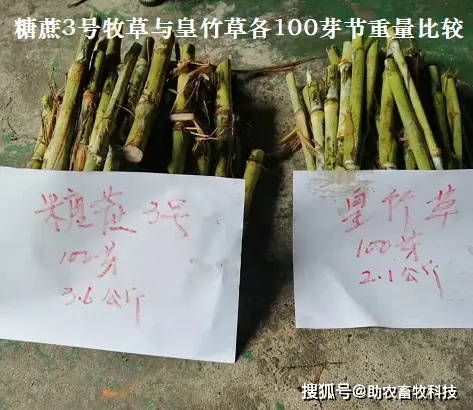 糖蔗3号牧草与皇竹草各100芽节重量比较
糖蔗3号
100芽
3.6公斤
皇竹草
100芽
2.1公斤
搜狐号@助农畜牧科技